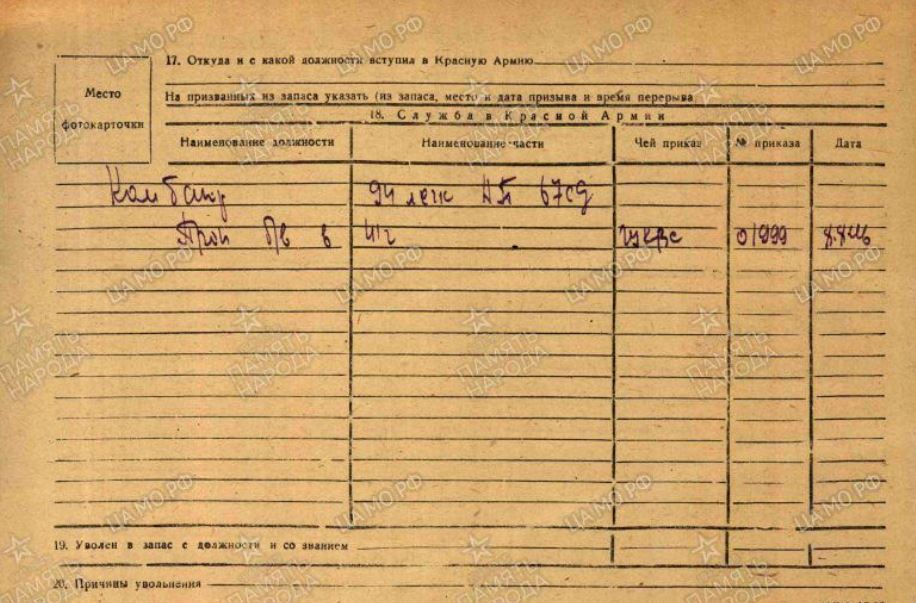 17. Откуда и с какой должности вступил в Красную Армию
Место
фотокарточки
На призванных из запаса указать (из запаса, место и дата призыва и время перерыва
18. Служба в Красной Армии
Наименование должности Наименование части Чей приказ № приказа Дата
94 легк АП 67сд
Проп б/в в 41 г ГУКВС 01999
19. Уволен в запас с должности и со званием
20. Причины увольнения
ЦАМО РФ
ПАМЯТЬ НАРОДА